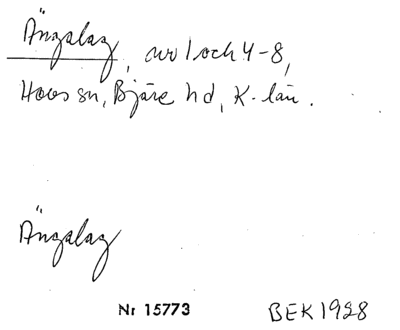 Ängalag, nr 1 och 4-8,
Hovs sn, Bjäre hd, K-län.
Ängalag
Nr 15773 BEK 1928